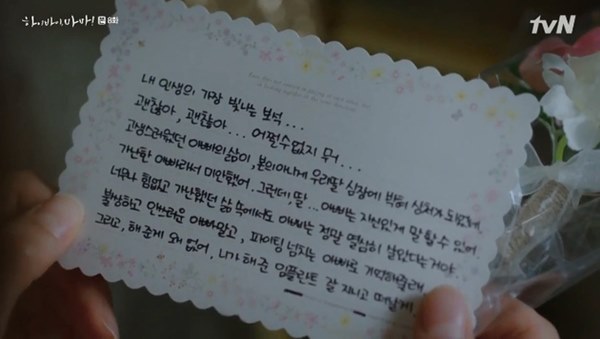 하이바이,마마! 본 8화
tvN
내 인생의 가장 빛나는 보석...
괜찮아, 괜찮아... 어쩔수없지 뭐...
고생스러웠던 아빠의 삶이, 본의아니게 우리딸 심장에 박혀 상처가 되었네.
가난한 아빠라서 미안했어. 그런데, 딸... 아빠는 자신있게 말할 수 있어
너무나 힘없고 가난했던 삶 속에서도 아빠는 정말 열심히 살았다는거야.
불쌍하고 안쓰러운 아빠말고, 파이팅 넘치는 아빠로 기억해줄래
그리고, 해준게 왜 없어, 니가 해준 임플란트 잘 지니고 떠날게.